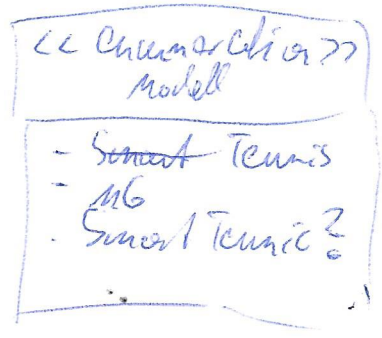 << Enumeration >>
Modell
- Smart Tennis
- MG
- Smart Tennis?